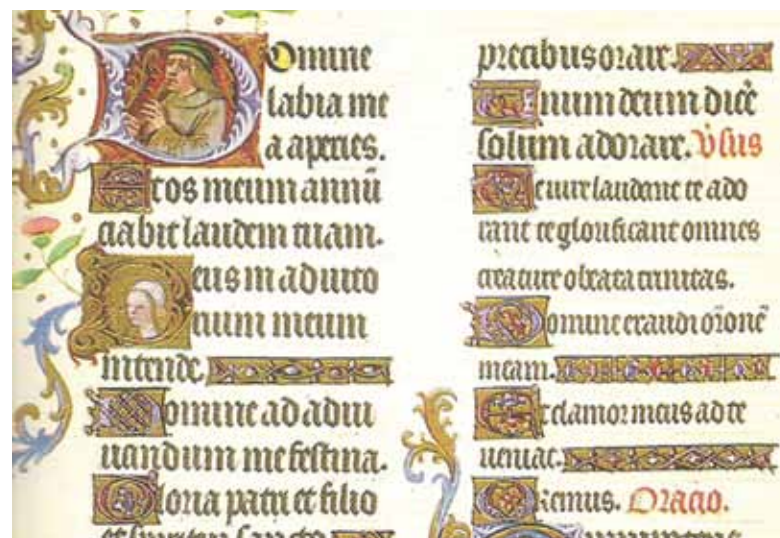 Domine
labia me
a aperies.
Et os meum annū
ciabit laudem tuam.
Deus in adiuto
rium meum
intende.
Domine ad adiu
uandum me festina.
Gloria patri et filio
precibus orare.
Cum deum dicē
solum adorare. Vsus
Te iure laudant te ado
rant te glorificant omnes
creature o beata trinitas.
Domine exaudi orōnē
meam.
Et clamor meus ad te
ueniat.
Oremus. Oracio.